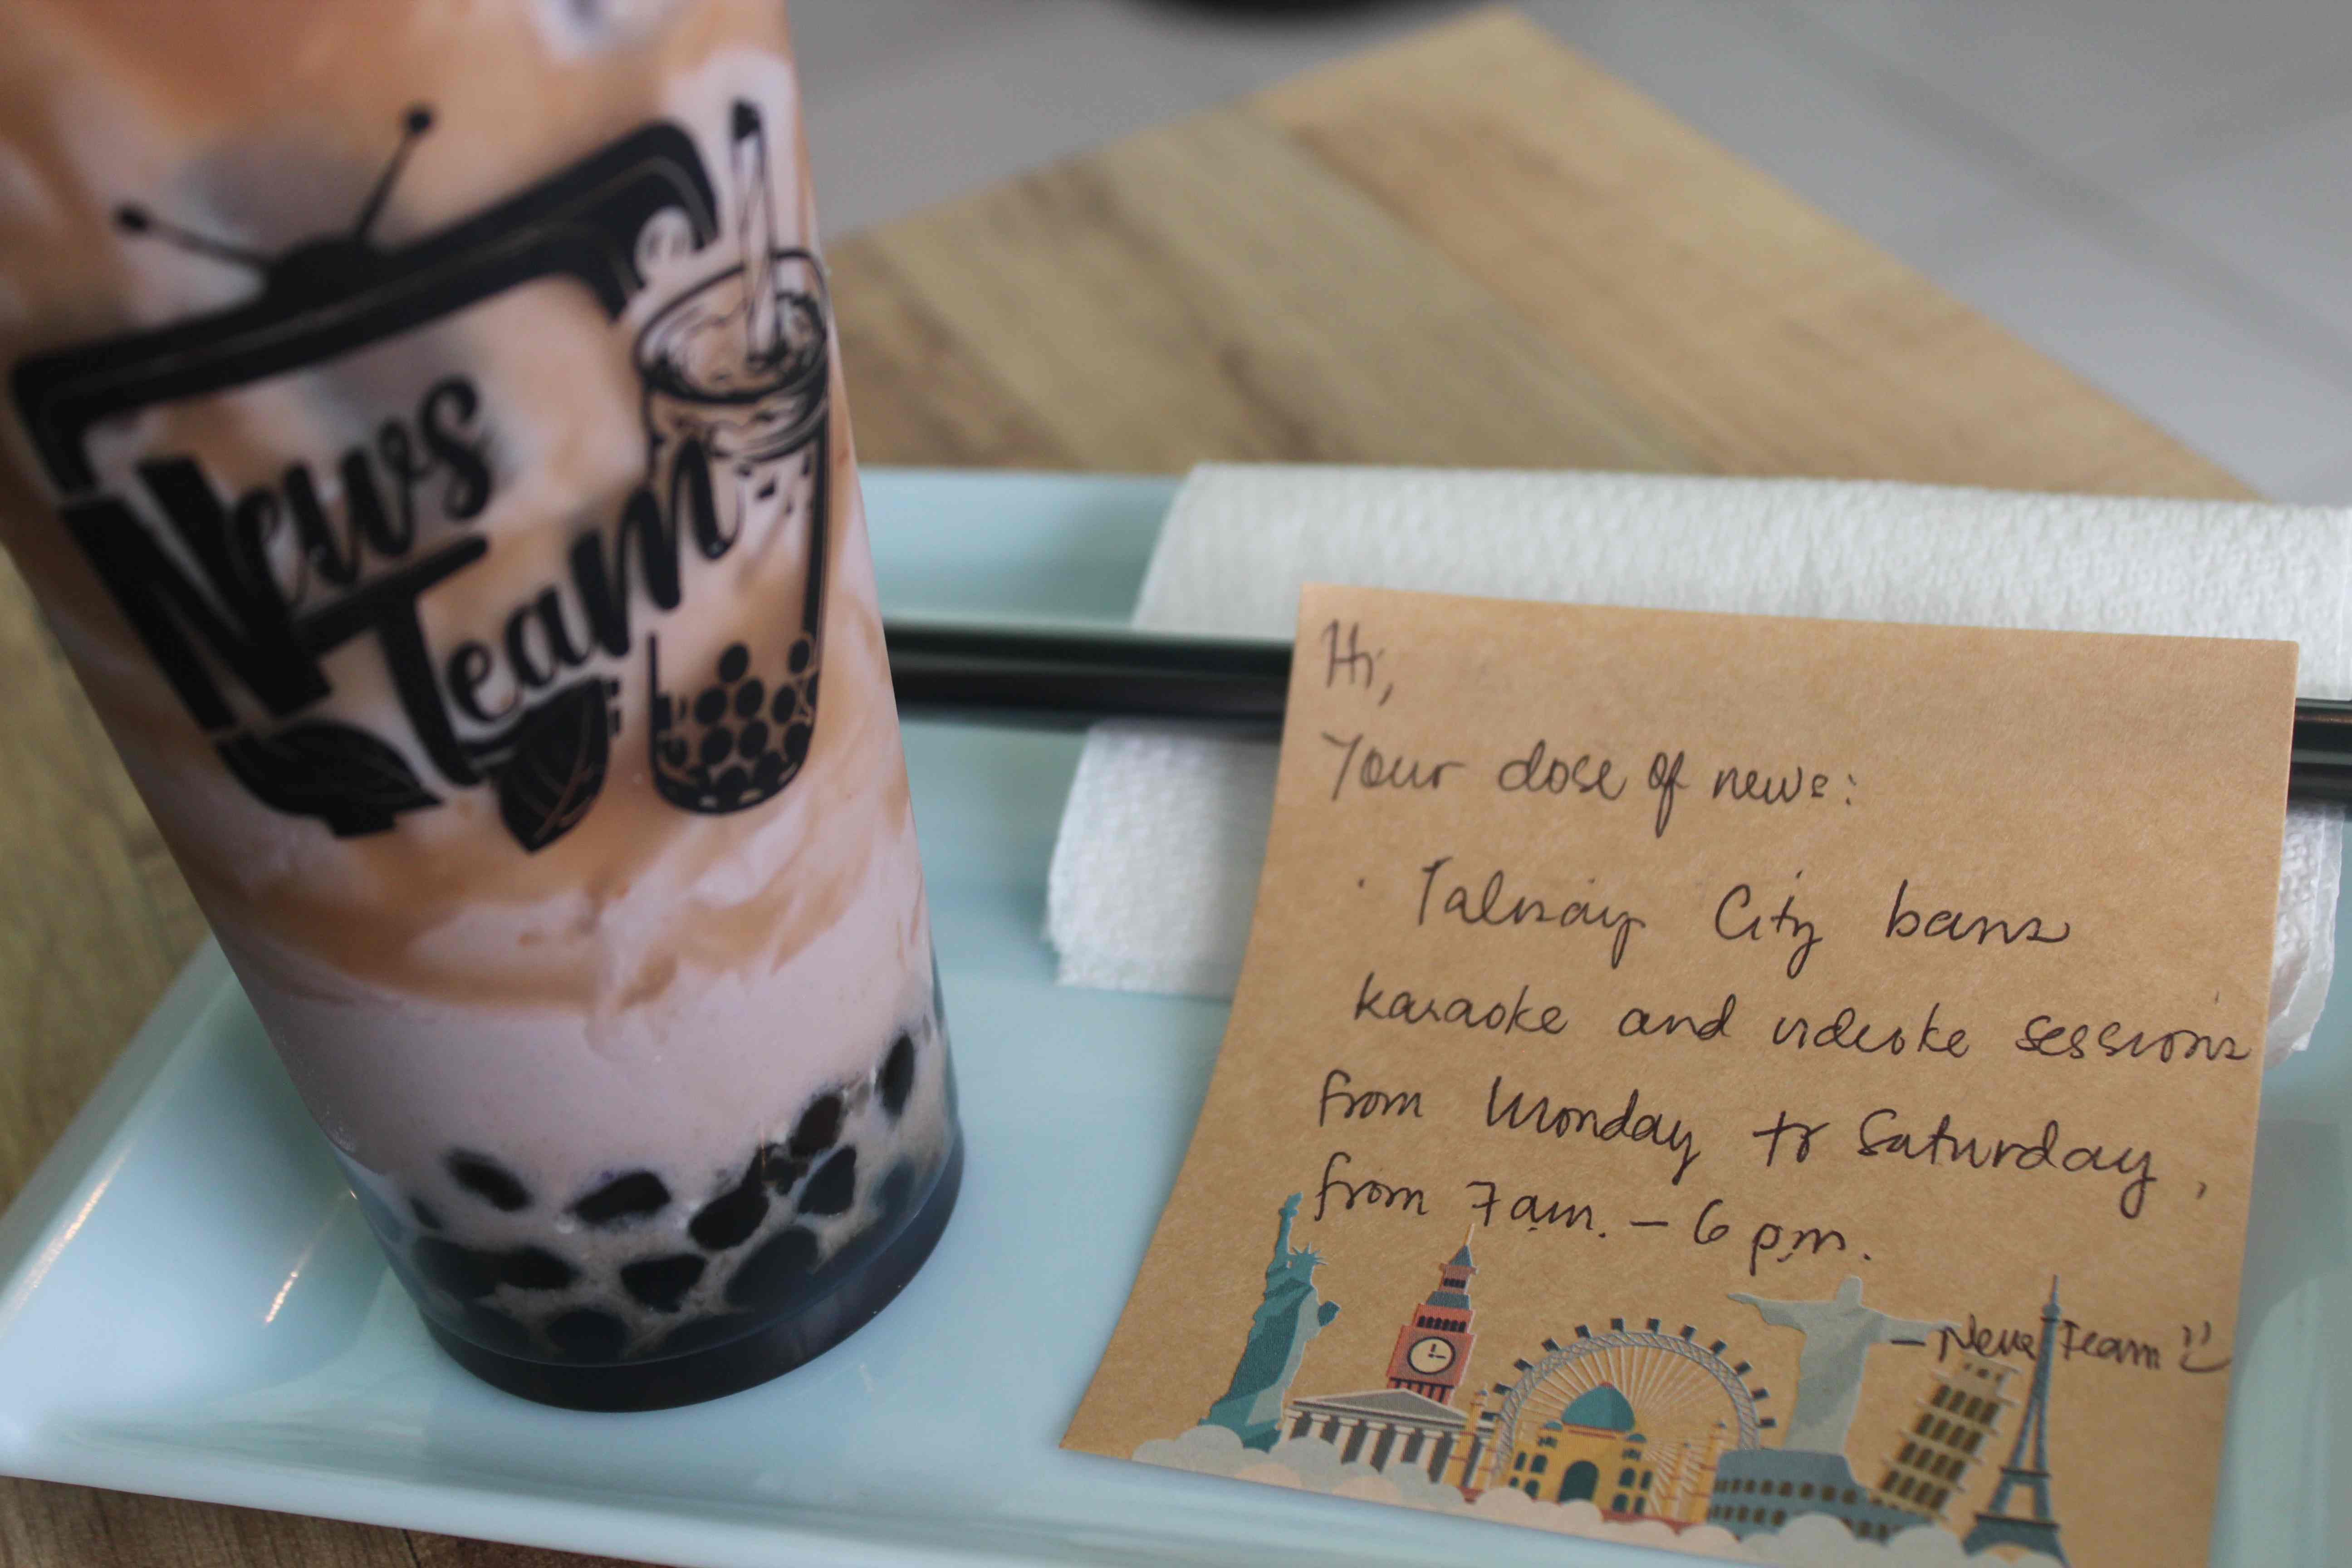 News
Team
Hi,
Your dose of news:
Talisay City bans
karaoke and videoke sessions
from Monday to Saturday,
from 7 a.m. - 6 p.m.
- News Team